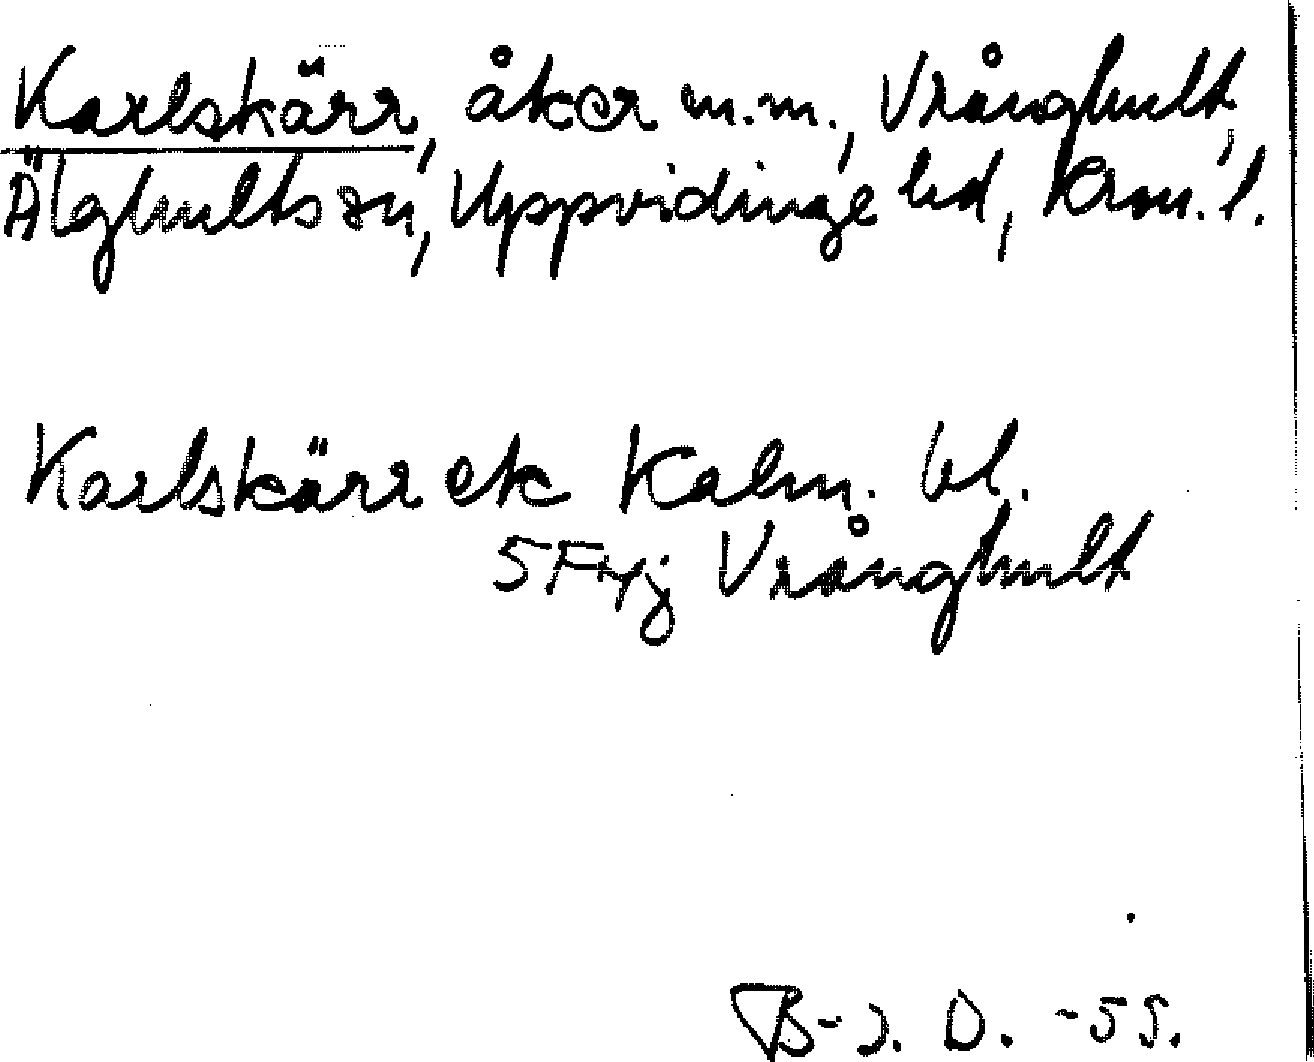 Karlskärr, åker m.m., Vrånghult,
Älghults sn, Uppvidinge hd, Kron. l.
Karlskärr ek Kalm. bl.
5F4j Vrånghult
B-J. D. -55.